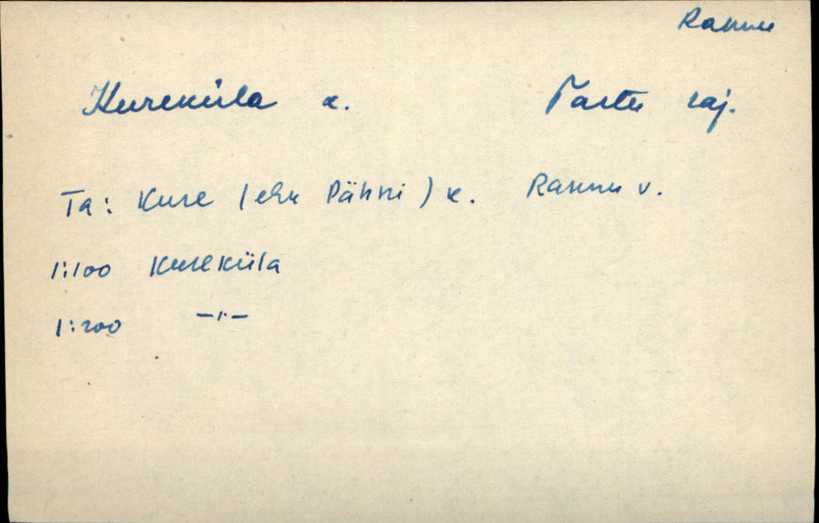 Rannu
Kureküla k. Tartu raj.
Ta: Kure (ehk Pähni) k. Rannu v.
1:100 Kureküla
1:200 –"–